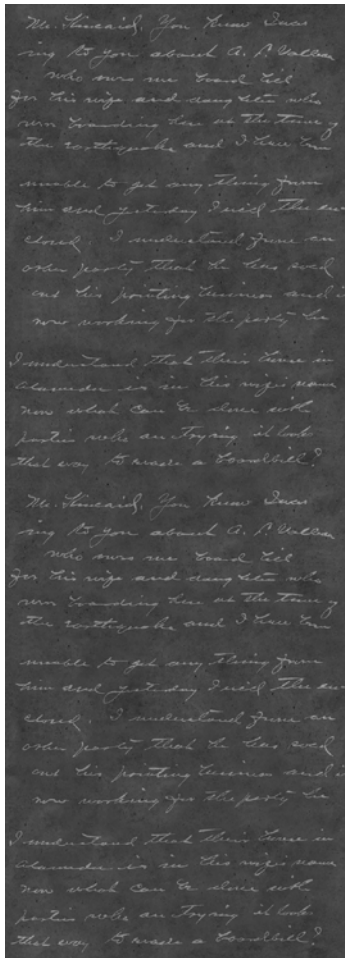 Mr. Kincaid, You Know I was
ing to you about A. P.
who owes me board bill
for his wife and daughter who
were boarding here at the time of
the earthquake and I have been
unable to get any thing from
him and yesterday I the en
closed. I understand from an
other party that he has sold
out his printing business and is
now working for the party he
I understand that their house in
Alameda is in his wife's name
now what can be done with
parties who are trying it looks
that way to evade a boardbill?
Mr. Kincaid, You Know I was
ing to you about A. P.
who owes me board bill
for his wife and daughter who
were boarding here at the time of
the earthquake and I have been
unable to get any thing from
him and yesterday I the en
closed. I understand from an
other party that he has sold
out his printing business and is
now working for the party he
I understand that their house in
Alameda is in his wife's name
now what can be done with
parties who are trying it looks
that way to evade a boardbill?